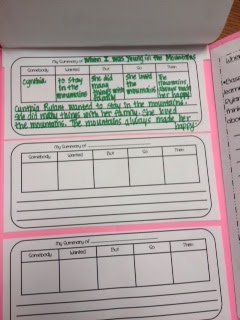 My Summary of When I Was Young in the Mountains
Somebody Wanted But So Then
Cynthia to stay in the mountains She did many things with family She loved the mountains The mountains always made her happy.
Cynthia Rylant wanted to stay in the mountains.
She did many things with her family. She loved
the mountains. The mountains always made her
happy.
My Summary of
Somebody Wanted But So Then
My Summary of
Somebody Wanted But So Then